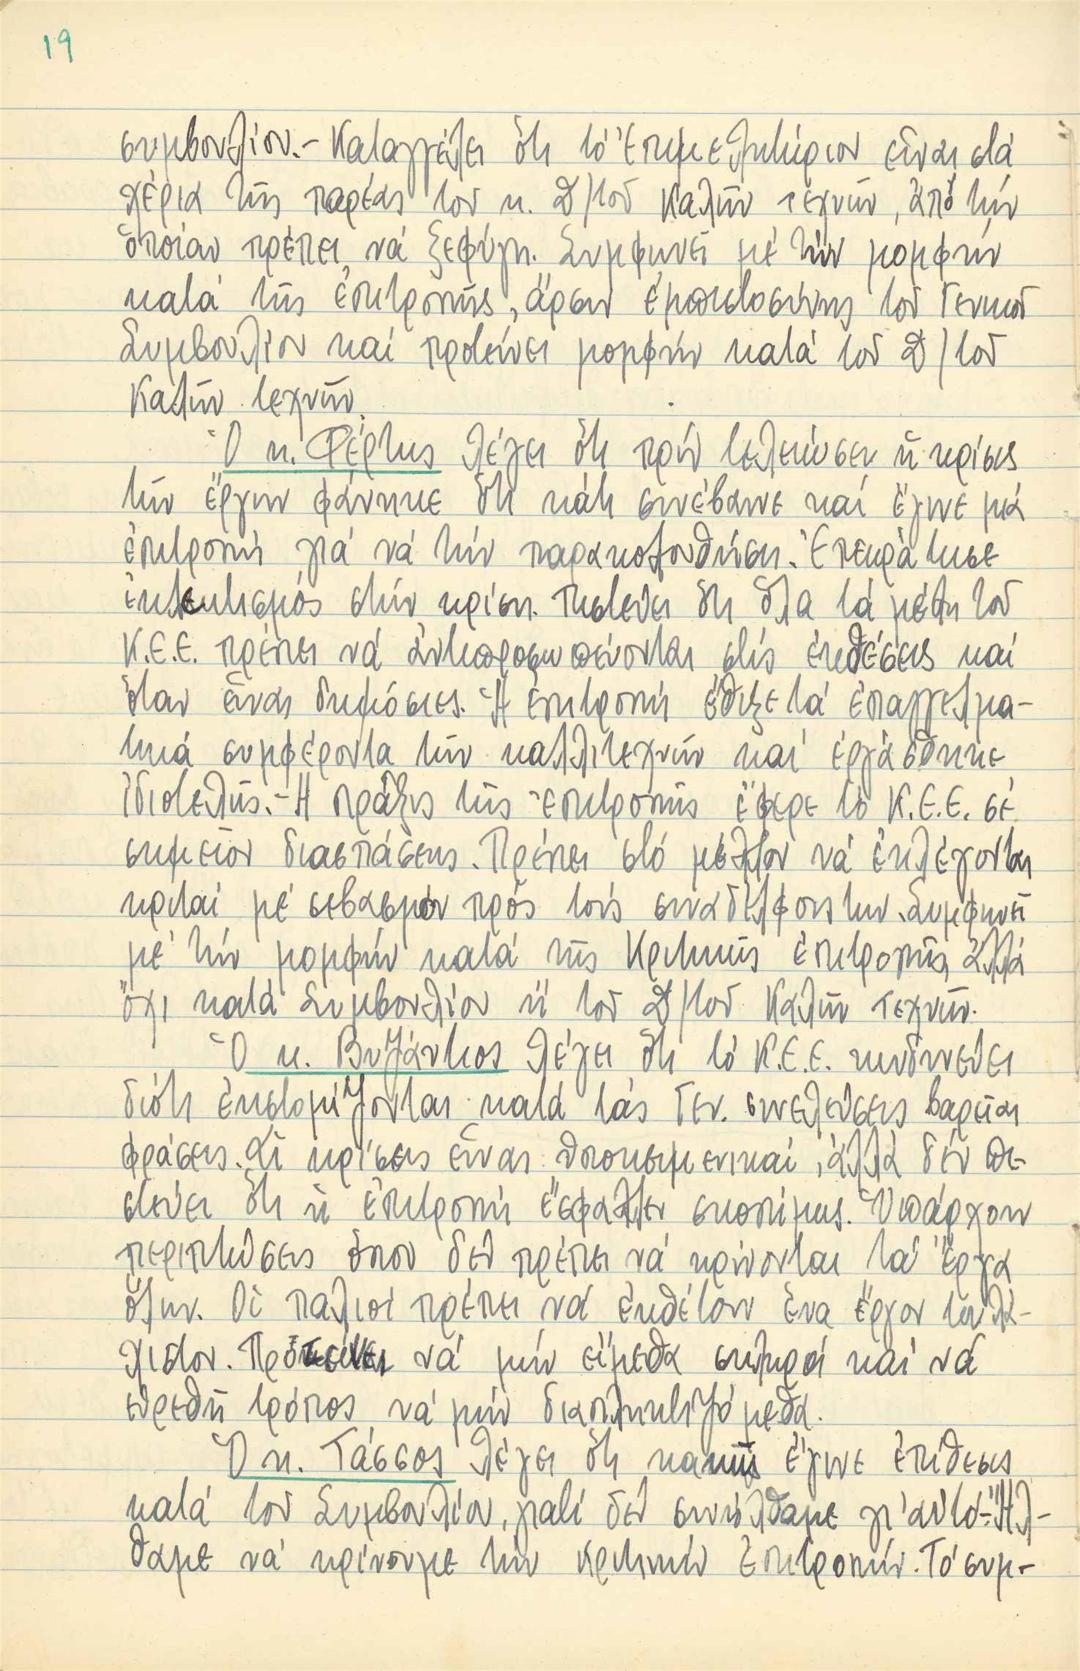 19
συμβουλίου.- Καταγγέλει ὅτι τό Ἐπιμελητήριον εἶναι στά
χέρια τῆς παρέας τοῦ κ. Δ/τοῦ Καλῶν τεχνῶν, ἀπό τήν
ὁποίαν πρέπει νά ξεφύγη. Συμφωνεῖ μέ τήν μομφήν
κατά τῆς ἐπιτροπῆς, ἄρσιν ἐμπιστοσύνης τοῦ Γενικοῦ
Συμβουλίου καί προτείνει μομφήν κατά τοῦ Δ/τοῦ
Καλῶν τεχνῶν.
Ὁ κ. Φέρτης λέγει ὅτι πρίν τελειώσει ἡ κρίσις
τῶν ἔργων φάνηκε ὅτι κάτι συνέβαινε καί ἔγινε μιά
ἐπιτροπή γιά νά τήν παρακολουθήση. Ἐπεκράτησε
ἐκλεκτισμός στήν κρίση. Πιστεύει ὅτι ὅλα τά μέλη τοῦ
Κ.Ε.Ε. πρέπει νά ἀντιπροσωπεύονται στίς ἐκθέσεις καί
ὅταν εἶναι δημόσιες. Ἡ ἐπιτροπή ἔθιξε τά ἐπαγγελμα-
τικά συμφέροντα τῶν καλλιτεχνῶν καί ἐργάσθηκε
ἰδιοτελῆς.- Ἡ πράξις τῆς ἐπιτροπῆς ἔφερε τό Κ.Ε.Ε. σέ
σημεῖον διασπάσεως. Πρέπει στό μέλλον νά ἐκλέγονται
κριταί μέ σεβασμόν πρός τούς συναδέλφους των. Συμφωνεῖ
μέ τήν μομφήν κατά τῆς Κριτικῆς ἐπιτροπῆς, ἀλλά
ὄχι κατά Συμβουλίου ἤ τοῦ Δ/τοῦ Καλῶν Τεχνῶν.
Ὁ κ. Βυζάντιος λέγει ὅτι τό Κ.Ε.Ε. κινδυνεύει
διότι ἐκστομίζονται κατά τάς Γεν. συνελεύσεις βαρεῖαι
φράσεις. Αἱ κρίσεις εἶναι ὑποκειμενικαί, ἀλλά δέν πι-
στεύει ὅτι ἡ ἐπιτροπή ἔσφαλλεν σκοπίμως. Ὑπάρχουν
περιπτώσεις ὅπου δέν πρέπει νά κρίνονται τά ἔργα
ὅλων. Οἱ παλιοί πρέπει νά ἐκθέτουν ἕνα ἔργον τουλά-
χιστον. Προτείνει νά μήν εἴμεθα σκληροί καί νά
εὑρεθῆ τρόπος νά μήν διαπληκτιζόμεθα.
Ὁ κ. Τάσσος λέγει ὅτι κακῶς ἔγινε ἐπίθεσις
κατά τοῦ Συμβουλίου, γιατί δέν συνήλθαμε γι' αὐτό.- Ἤλ-
θαμε νά κρίνουμε τήν κριτικήν Ἐπιτροπήν. Τό συμ-